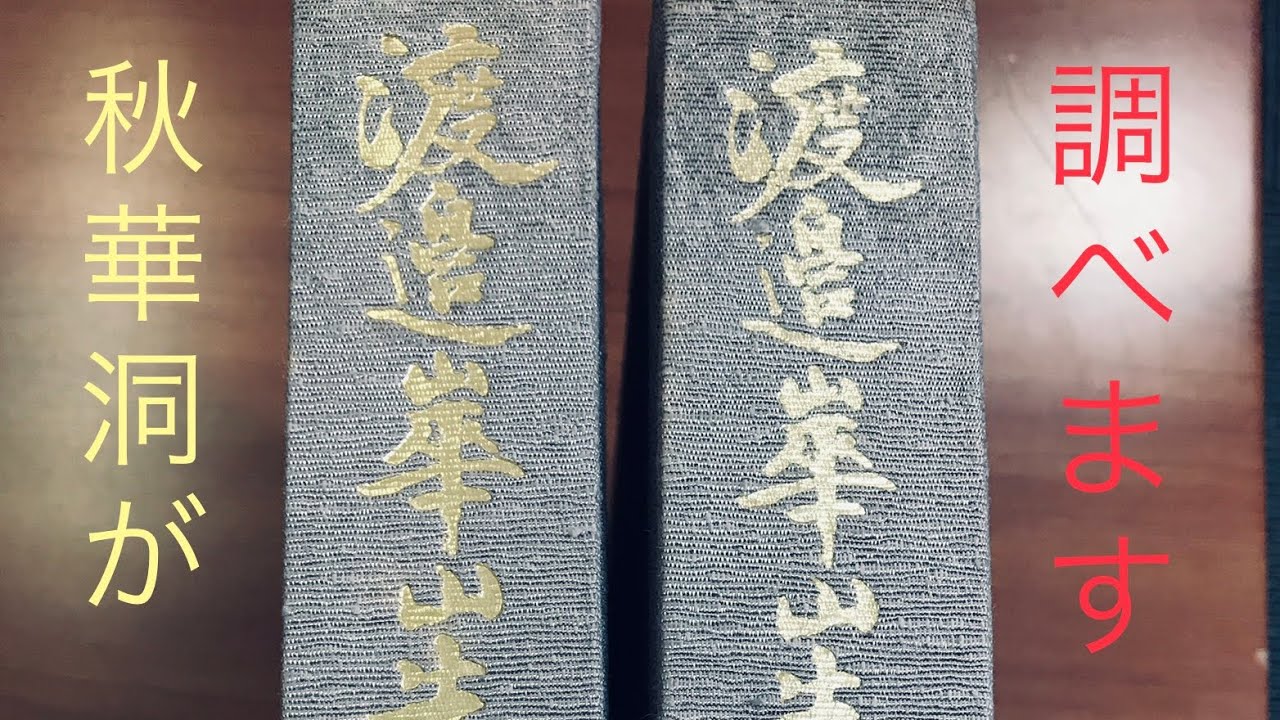 秋華洞が
調べます
渡邉崋山
渡邉崋山